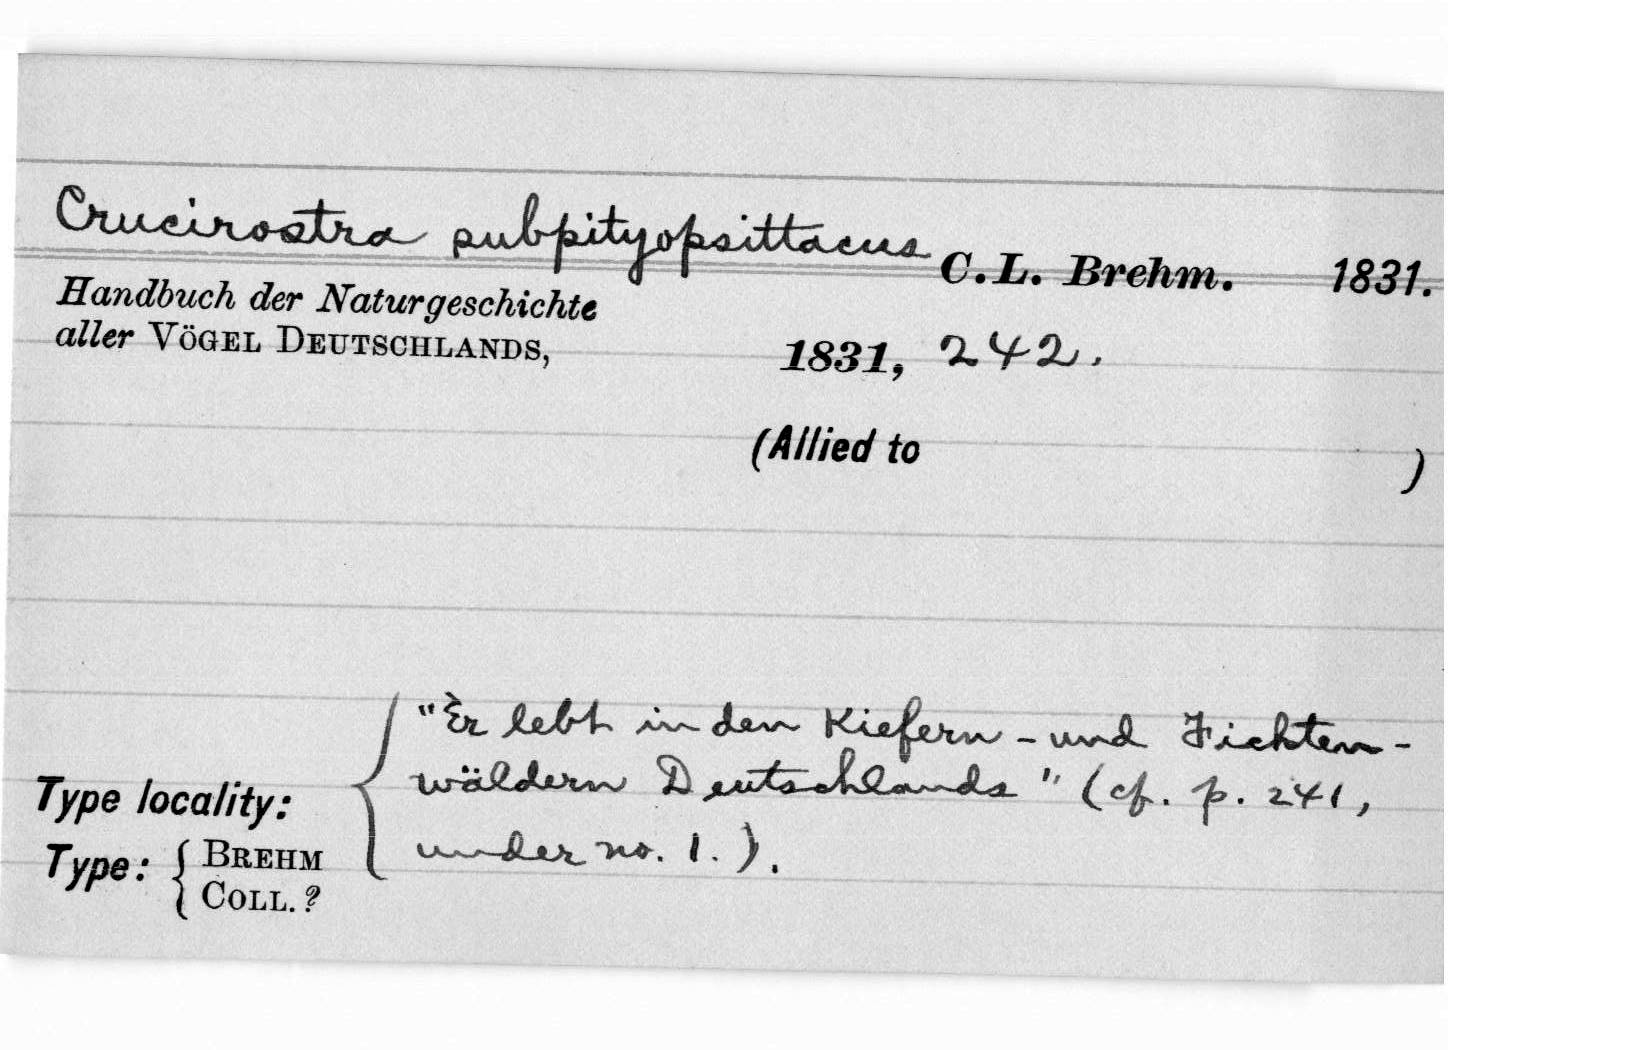 Crucirostra subpityopsittacus C.L. Brehm. 1831.
Handbuch der Naturgeschichte
aller VÖGEL DEUTSCHLANDS, 1831, 242.
(Allied to )
"Er lebt in den Kiefern - und Fichten -
wäldern Deutschlands" (cf. p. 241,
under no. 1.).
Type locality:
Type: { BREHM
COLL. ?